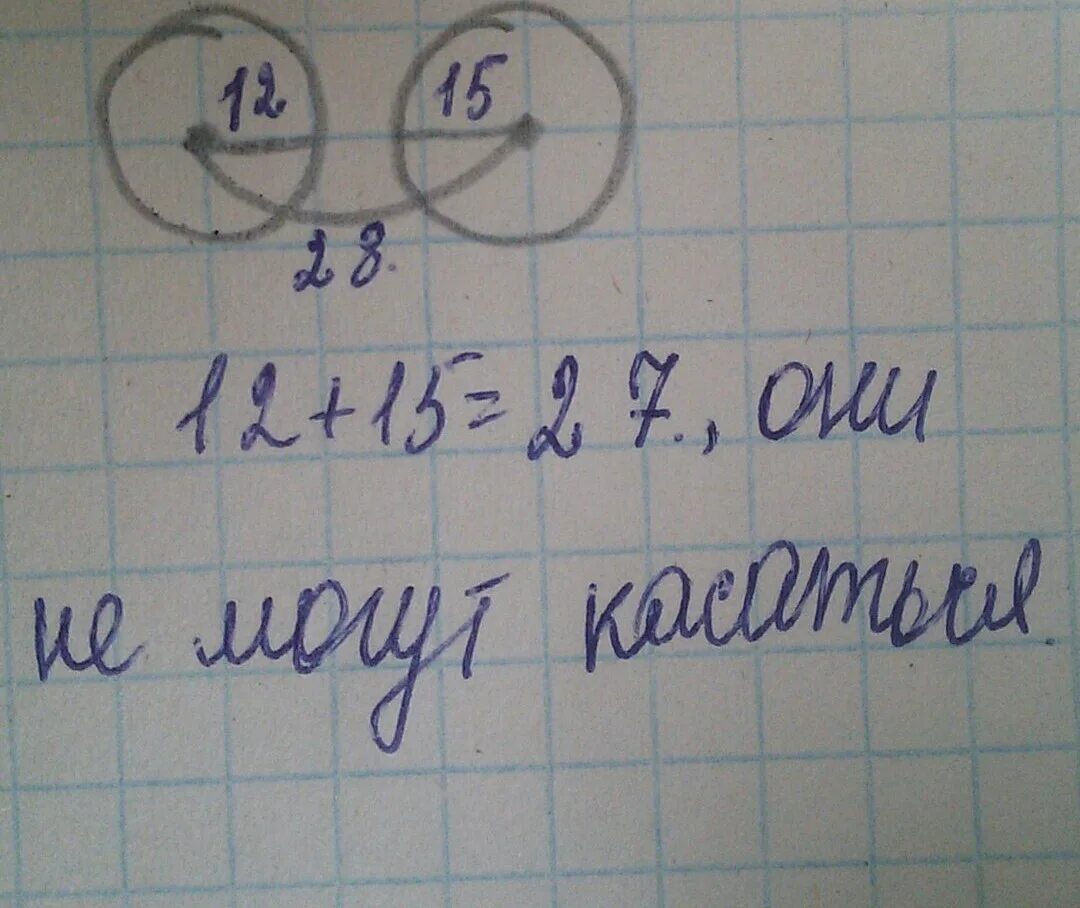 12 15
28.
12+15=27., они
не могут касаться